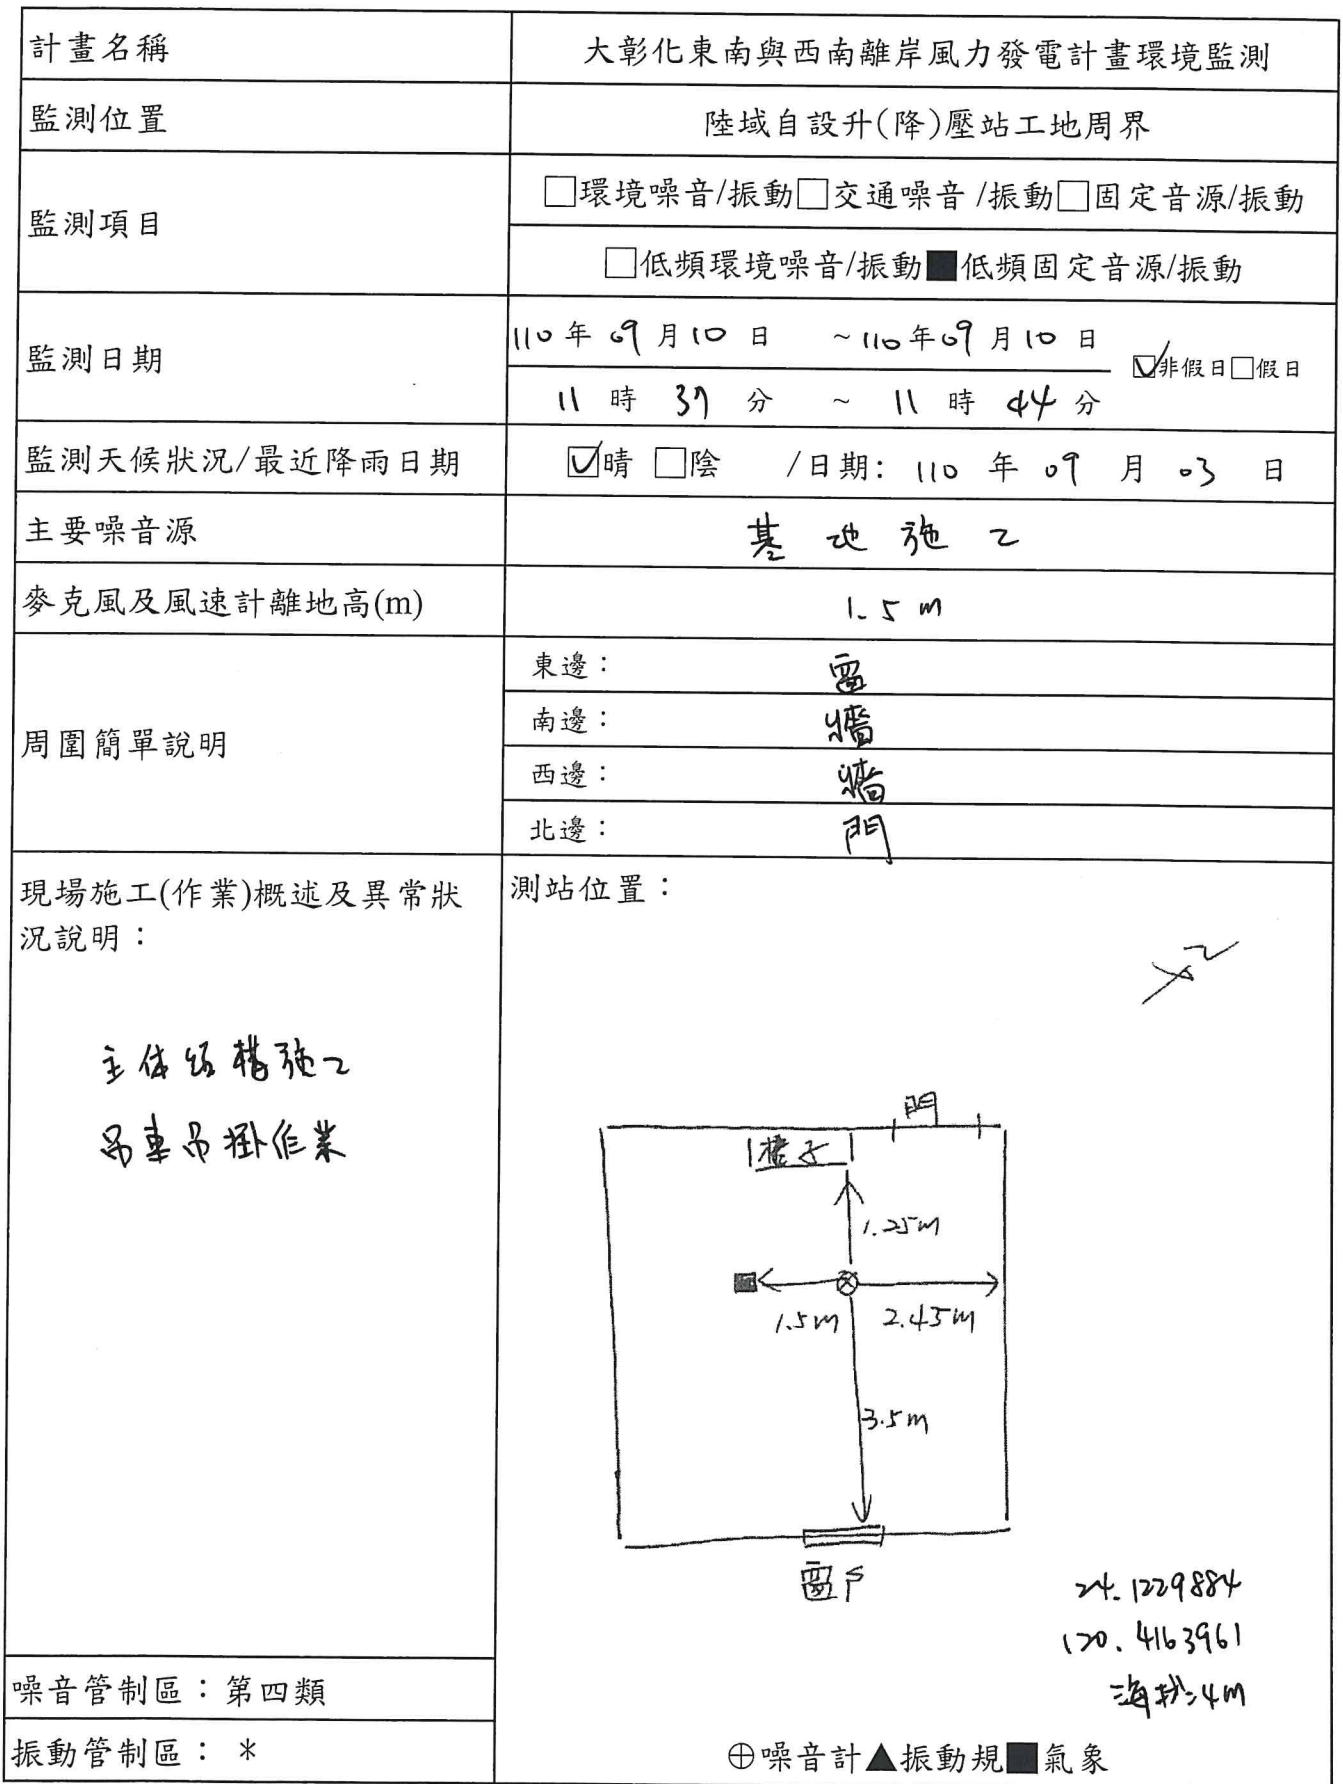 計畫名稱 大彰化東南與西南離岸風力發電計畫環境監測
監測位置 陸域自設升(降)壓站工地周界
監測項目
□環境噪音/振動□交通噪音/振動□固定音源/振動
□低頻環境噪音/振動■低頻固定音源/振動
監測日期
110年09月10日 ~110年09月10日
11時37分 ~ 11時44分
☑非假日□假日
監測天候狀況/最近降雨日期 ☑晴 □陰 /日期: 110年09月03日
主要噪音源 基地施工
麥克風及風速計離地高(m) 1.5m
周圍簡單說明
東邊: 窗
南邊: 牆
西邊: 牆
北邊: 門
現場施工(作業)概述及異常狀
況說明:
主体結構施工
吊車吊掛作業
測站位置:
門
櫃子
1.25m
1.5m
2.45m
3.5m
窗戶
24.1229884
120.4163961
海拔:4m
噪音管制區:第四類
振動管制區: *
⊕噪音計▲振動規■氣象